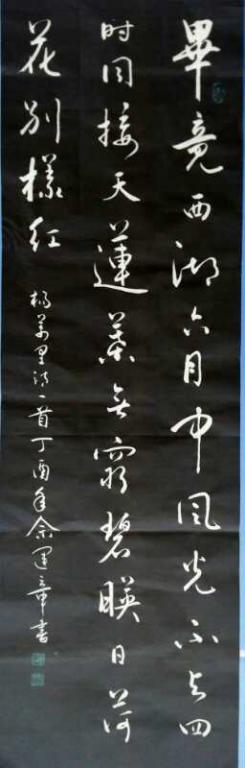 畢竟西湖六月中風光不与四
时同接天蓮葉無窮碧暎日荷
花别樣红
楊萬里詩一首丁酉年余運章書